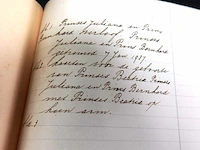 No 1. Prinses Juliana en Prins
Bernhard verloofd. Prinses
Juliana en Prins Bernhard
getrouwd 7 Jan. 1937
No 2. kaarten voor de geboorte
van Prinses Beatrix. Prinses
Juliana en Prins Bernhard
met Prinses Beatrix op
haar arm.